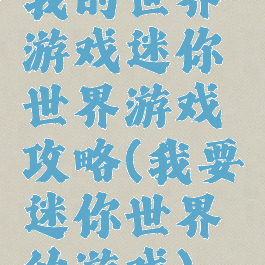 我的世界
游戏迷你
世界游戏
攻略(我要
迷你世界
的游戏)